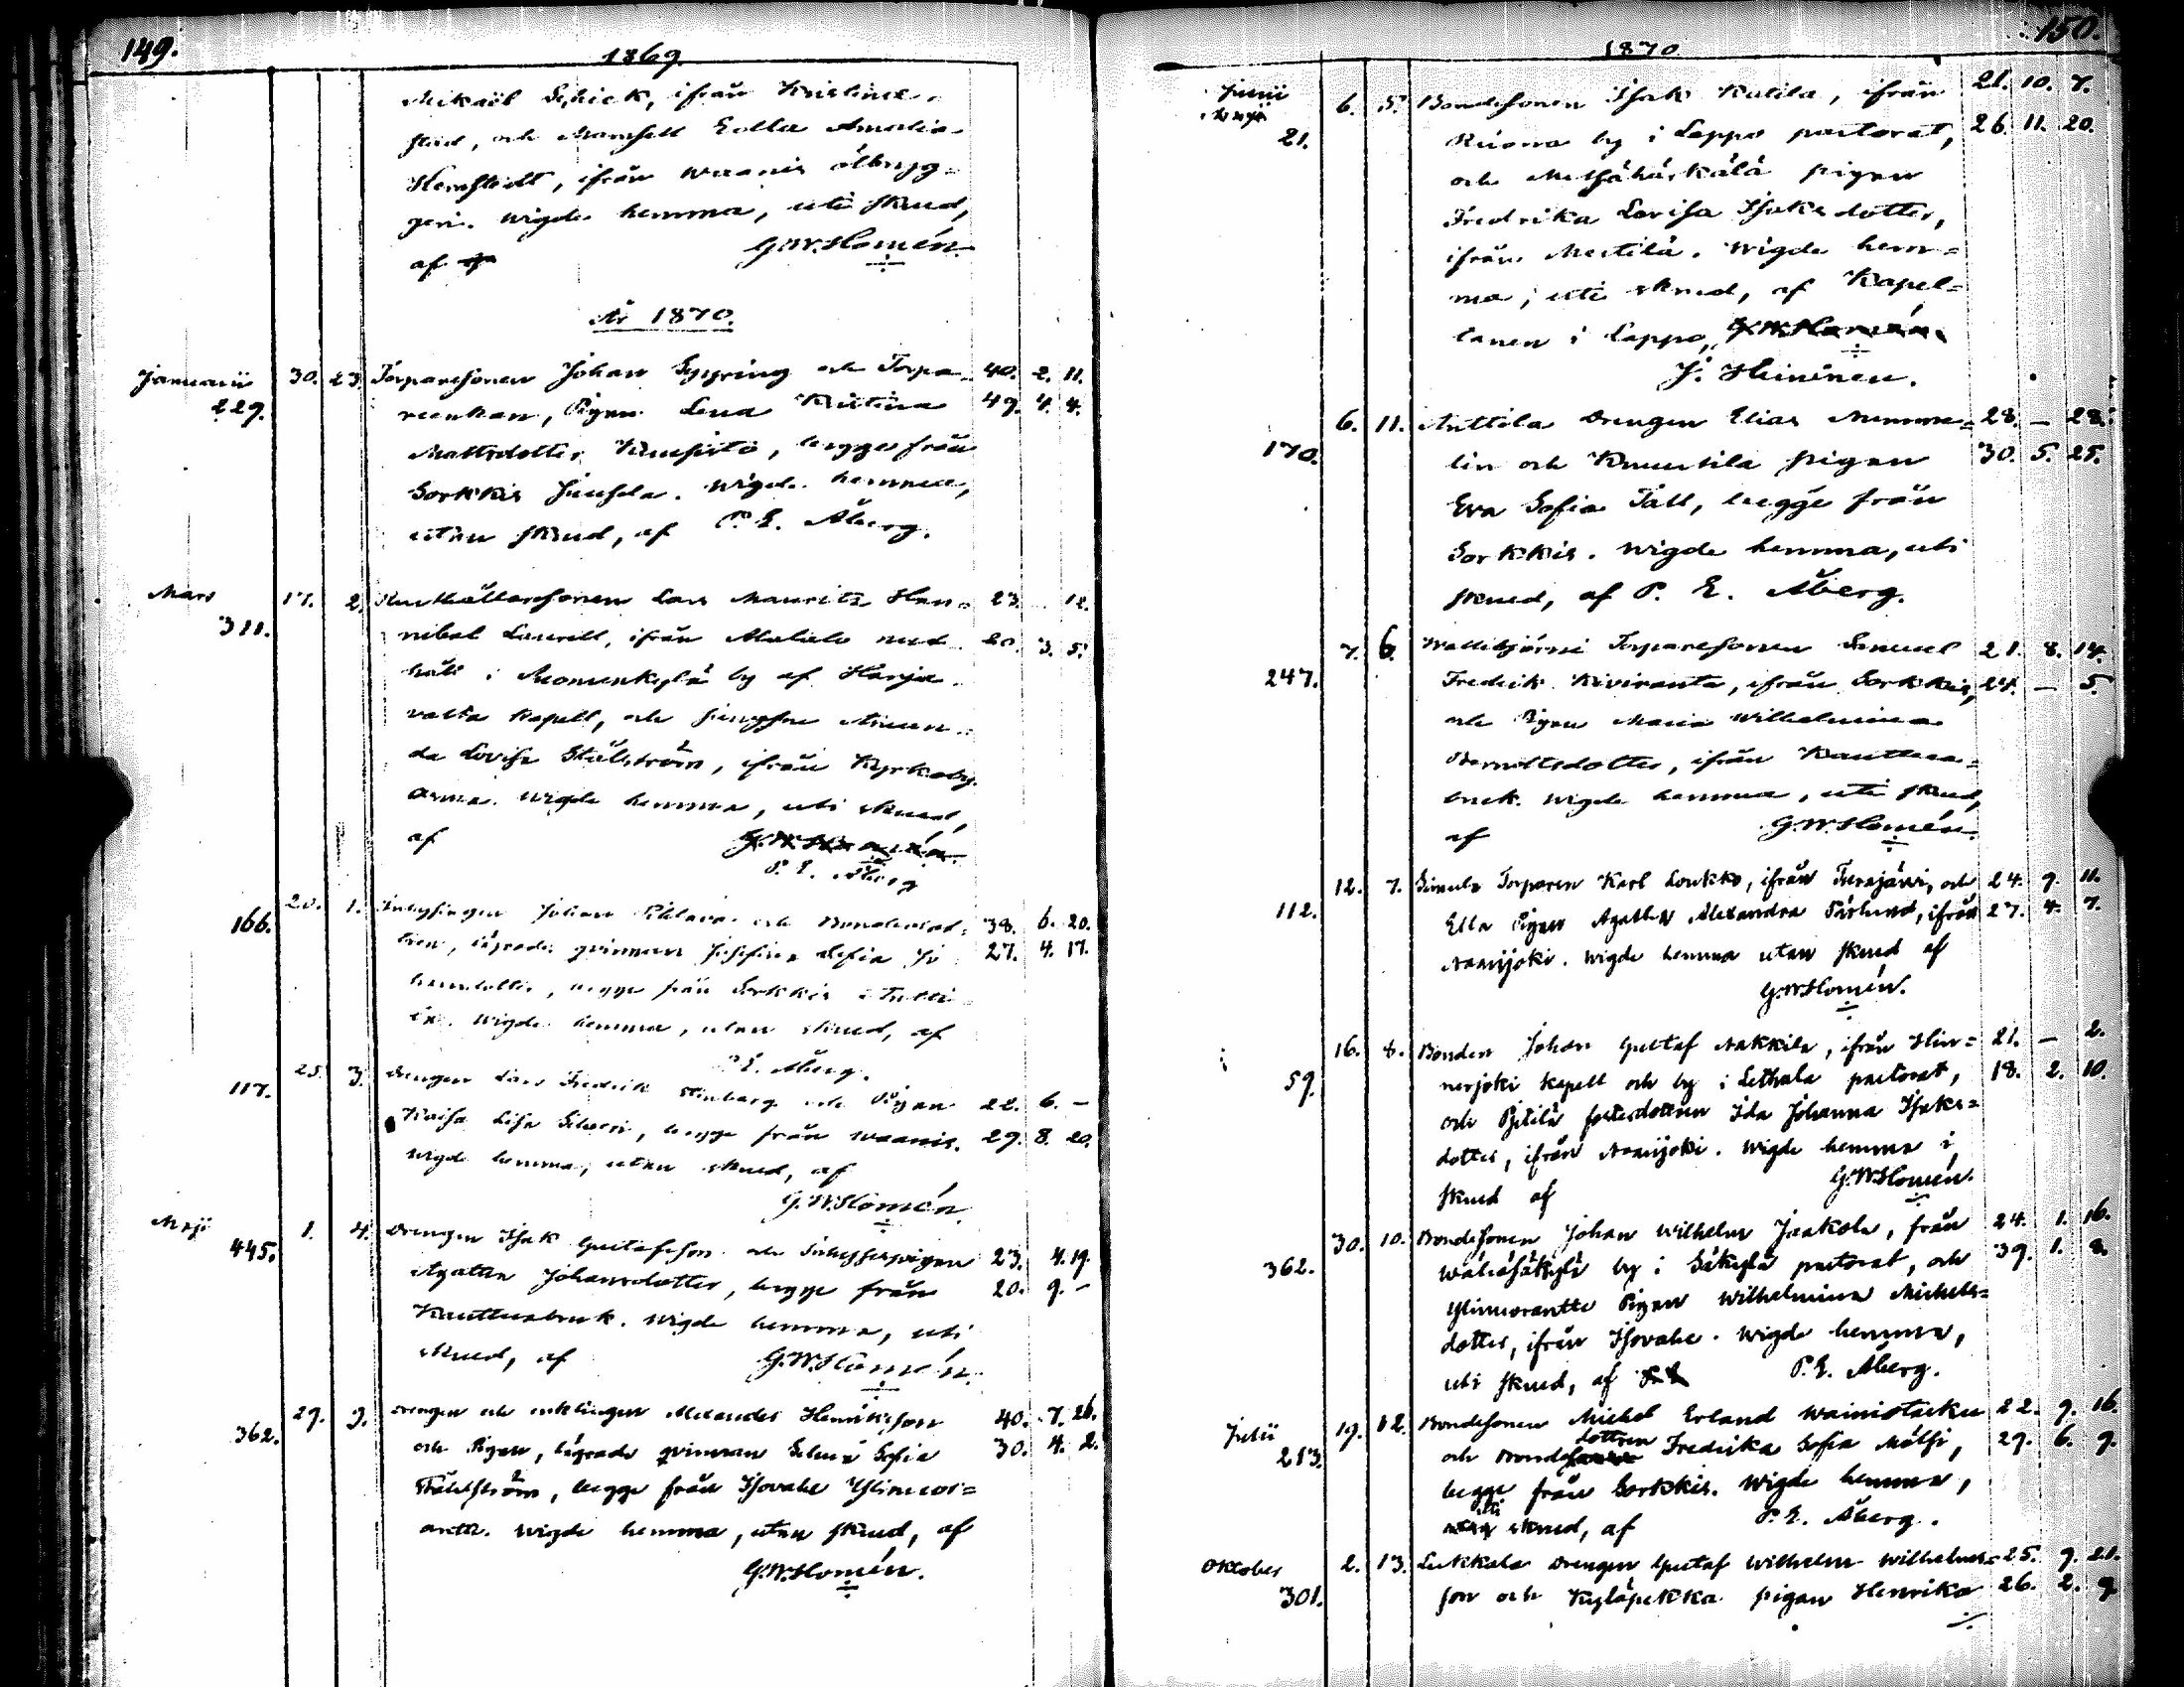 149.
1869.
Mikaël Schick, ifrån Kristine-
stad, och Mamsell Edla Amalia
Hemstedt, ifrån Waanis ölbryg-
geri. Wigde hemma, uti skrud,
af G.W. Homén.
År 1870.
Januarii 30. 23 Torparesonen Johan Sjöring och Torpa- 40. 2. 11.
229. reenkan, Pigan Lena Kristina 49. 4. 4.
Mattsdotter, begge från
Sorkkis. Wigde hemma,
utan skrud, af P. E. Åberg.
Mars 17. 2. Lars Mauritz Han- 23. 12.
311. nibal Laurell, ifrån 20. 3. 5.
håll i by af Harja-
valta kapell, och jungfru Aman-
da Lovisa Stålström, ifrån Kyrkoby
Wigde hemma, uti skrud,
af
P. E. Åberg
20. 1. Johan och 38. 6. 20.
166. lägrade qvinnan Josefina Sofia Jo- 27. 4. 17.
hansdotter, begge från Sorkkis
Wigde hemma, utan skrud, af
P. E. Åberg.
25. 3. Drengen Lars Fredrik Stenberg och Pigan 22. 6. –
117. Kaisa Lisa, begge från Waanis. 29. 8. 20.
Wigde hemma, utan skrud, af
G.W. Homén.
Maji 1. 4. Drengen Isak Gustafsson och Inhysespigan 23. 4. 19.
445. Agatha Johansdotter, begge från 20. 9. –
Kauttuabruk. Wigde hemma, uti
skrud, af G.W. Homén.
29. 9. Drengen och enklingen Alexander Henriksson 40. 7. 26.
362. och Pigan, lägrade qvinnan Selma Sofia 30. 4. 2.
Stålström, begge från Isovahe Ylinuor-
antti. Wigde hemma, utan skrud, af
G.W. Homén.
150.
1870
Junii 6. 5. Bondesonen Isak Katila, ifrån 21. 10. 7.
21. by i Lappo pastorat, 26. 11. 20.
och pigan
Fredrika Lovisa Isaksdotter,
ifrån Mestilä. Wigde hem-
ma, uti skrud, af Kapel-
lanen i Lappo, G.W. Homén.
J. Heininen.
6. 11. Anttila Drengen Elias Numme- 28. – 28.
170. lin och Knuutila pigan 30. 5. 25.
Eva Sofia Tall, begge från
Sorkkis. Wigde hemma, uti
skrud, af P. E. Åberg.
7. 6. Torparesonen Samuel 21. 8. 14.
247. Fredrik Kiviranta, ifrån Sorkkis, 24. – 5.
och Pigan Maria Wilhelmina
Berndtsdotter, ifrån Kauttua-
bruk. Wigde hemma, uti skrud,
af G.W. Homén.
12. 7. Simula Torparen Karl Loukko, ifrån Turajärvi, och 24. 9. 11.
112. Ella Pigan Agatha Alexandra Törlund, ifrån 27. 4. 7.
Naarijoki. Wigde hemma utan skrud af
G.W. Homén.
16. 8. Bonden Johan Gustaf Nakkila, ifrån Hin- 21. – 2.
59. nerjoki kapell och by i Lethala pastorat, 18. 2. 10.
och Pjetilä fosterdottren Ida Johanna Isaks-
dotter, ifrån Naarijoki. Wigde hemma i
skrud af G.W. Homén.
30. 10. Bondesonen Johan Wilhelm Jaakola, från 24. 1. 16.
362. by i Säkylä pastorat, och 39. 1. 8.
Ylinuorantti Pigan Wilhelmina Michels-
dotter, ifrån Isovahe. Wigde hemma,
uti skrud, af P. E. Åberg.
Julii 19. 12. Bondesonen Michel Erland Wainiotakku 22. 9. 16.
213. och Bondedottren Fredrika Sofia Mälsi, 29. 6. 9.
begge från Sorkkis. Wigde hemma,
uti skrud, af P. E. Åberg.
Oktober 2. 13. Lukkala Drengen Gustaf Wilhelm Wilhelms- 25. 9. 21.
301. son och Kyläpekka pigan Henrika 26. 2. 9